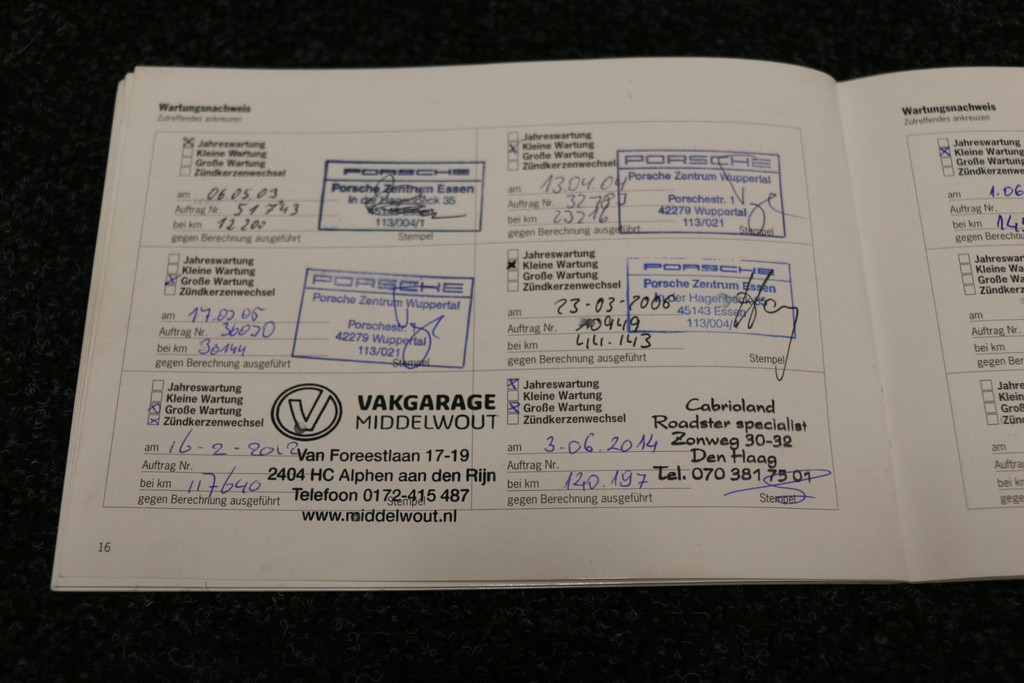 Wartungsnachweis
Zutreffendes ankreuzen
Jahreswartung
Kleine Wartung
Große Wartung
Zündkerzenwechsel
am 06.05.03
Auftrag Nr. 51743
bei km 12 200
gegen Berechnung ausgeführt
Stempel
PORSCHE
Porsche Zentrum Essen
In der Hagenbeck 35
45143 Essen
113/004/1
Jahreswartung
Kleine Wartung
Große Wartung
Zündkerzenwechsel
am 13.04.04
Auftrag Nr.
bei km 23216
gegen Berechnung ausgeführt
Stempel
PORSCHE
Porsche Zentrum Wuppertal
Porschestr. 1
42279 Wuppertal
113/021
Jahreswartung
Kleine Wartung
Große Wartung
Zündkerzenwechsel
am
Auftrag Nr.
bei km 30144
gegen Berechnung ausgeführt
Stempel
PORSCHE
Porsche Zentrum Wuppertal
Porschestr.
42279 Wuppertal
113/021
Jahreswartung
Kleine Wartung
Große Wartung
Zündkerzenwechsel
am 23-03-2006
Auftrag Nr.
bei km 44.143
gegen Berechnung ausgeführt
Stempel
PORSCHE
Porsche Zentrum Essen
In der Hagenbeck 35
45143 Essen
113/004/
Jahreswartung
Kleine Wartung
Große Wartung
Zündkerzenwechsel
am 16-2-2012
Auftrag Nr.
bei km 117640
gegen Berechnung ausgeführt
Stempel
VAKGARAGE
MIDDELWOUT
Van Foreestlaan 17-19
2404 HC Alphen aan den Rijn
Telefoon 0172-415 487
www.middelwout.nl
Jahreswartung
Kleine Wartung
Große Wartung
Zündkerzenwechsel
am 3-06.2014
Auftrag Nr.
bei km 120.197
gegen Berechnung ausgeführt
Stempel
Cabrioland
Roadster specialist
Zonweg 30-32
Den Haag
Tel. 070 381 75 01
16
Wartungsnachweis
Zutreffendes ankreuzen
Jahreswartung
Kleine Wartung
Große Wartung
am 1.06
Auftrag Nr.
bei km
gegen Berechnung
am
Auftrag Nr.
bei km
gegen Berech
am
bei km